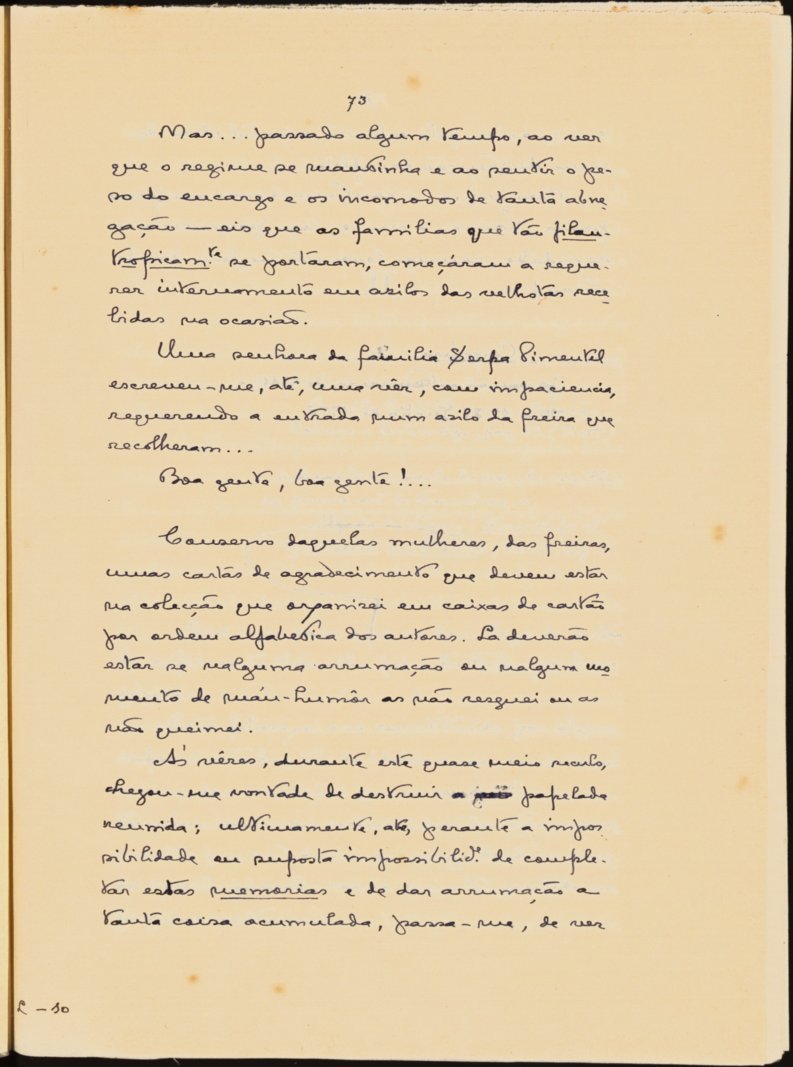 73
Mas... passado algum tempo, ao ver
que o regime se mantinha e ao sentir o pe-
so do encargo e os incomodos de tanta abne-
gação — eis que as familias que tão filan-
tropicam.te se portaram, começáram a reque-
rer internamento em asilos das velhotas rece-
bidas na ocasião.
Uma senhora da familia Serpa Pimentel
escreveu-me, até, uma vêz, com impaciencia,
requerendo a entrada num asilo da freira que
recolheram...
Boa gente, boa gente!...
Conservo daquelas mulheres, das freiras,
umas cartas de agradecimento que devem estar
na colecção que organisei em caixas de cartão
por ordem alfabetica dos autores. Lá deverão
estar se nalguma arrumação ou nalgum mo-
mento de máu-humôr as não rasguei ou as
não queimei.
Ás vêzes, durante este quase meio seculo,
chegou-me vontade de destruir a papelada
reunida; ultimamente, até, perante a impos
sibilidade ou suposta impossibilid.e de comple-
tar estas memorias e de dar arrumação a
tanta coisa acumulada, passa-me, de ver
L - 10